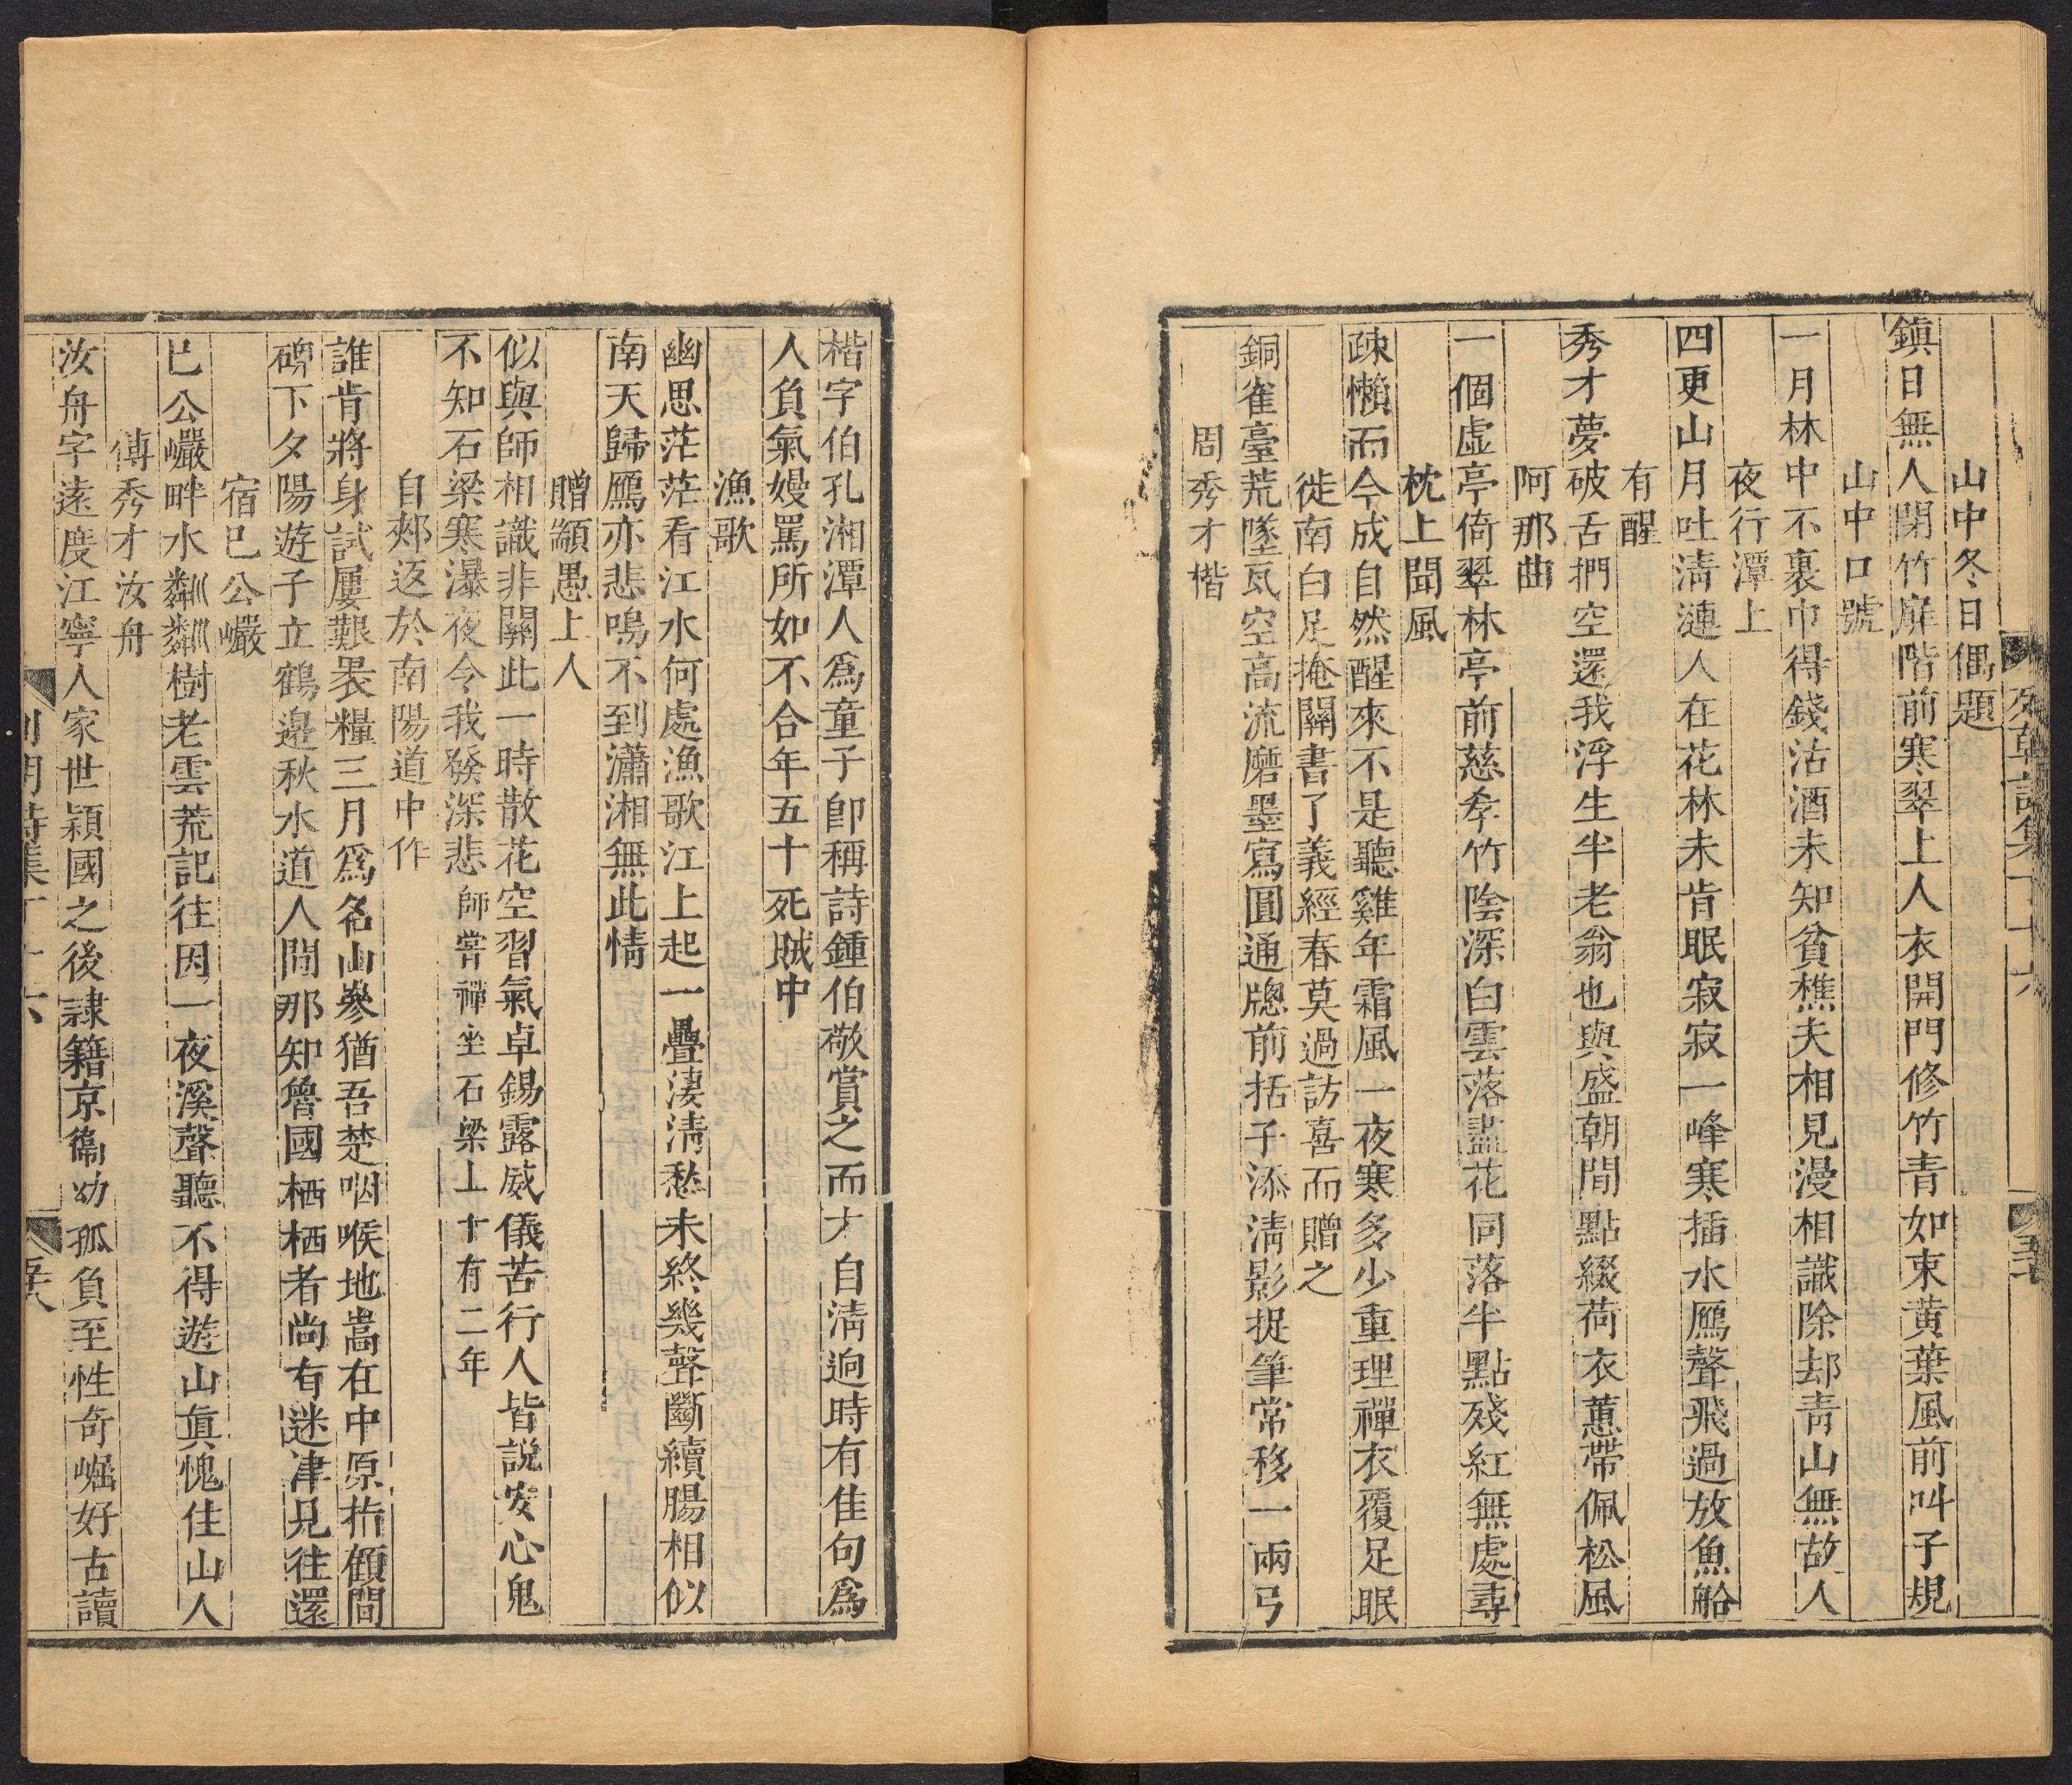 列朝詩集丁十六
山中冬日偶題
鎮日無人閉竹扉階前寒翠上人衣開門修竹青如束黃葉風前叫子規
山中口號
一月林中不裹巾得錢沽酒未知貧樵夫相見漫相識除却靑山無故人
夜行潭上
四更山月吐淸漣人在花林未肯眠寂寂一峰寒插水鴈聲飛過放魚船
有醒
秀才夢破舌捫空還我浮生半老翁也與盛朝閒點綴荷衣蕙帶佩松風
阿那曲
一個虛亭倚翠林亭前慈孝竹陰深白雲落盡花同落半點殘紅無處尋
枕上聞風
疎懶而今成自然醒來不是聽雞年霜風一夜寒多少重理禪衣覆足眠
徙南白足掩關書了義經春莫過訪喜而贈之
銅雀臺荒墜瓦空高流磨墨寫圓通牕前括子添淸影捉筆常移一兩弓
周秀才楷
楷字伯孔湘潭人爲童子卽稱詩鍾伯敬賞之而才自淸逈時有佳句爲
人負氣嫚罵所如不合年五十死賊中
漁歌
幽思茫茫看江水何處漁歌江上起一疊淒淸愁未終幾聲斷續腸相似
南天歸鴈亦悲鳴不到瀟湘無此情
贈顓愚上人
似與師相識非關此一時散花空習氣卓錫露威儀苦行人皆說安心鬼
不知石梁寒瀑夜令我發深悲師嘗禪坐石梁上十有二年
自郟返於南陽道中作
誰肯將身試屢艱褁糧三月爲名山參猶吾楚咽喉地嵩在中原指顧間
碑下夕陽遊子立鶴邉秋水道人閒那知魯國栖栖者尚有迷津見往還
宿巳公巖
巳公巖畔水粼粼樹老雲荒記往因一夜溪聲聽不得遊山眞愧住山人
傅秀才汝舟
汝舟字遠度江寧人家世潁國之後隷籍京衞幼孤負至性奇崛好古讀
五十八